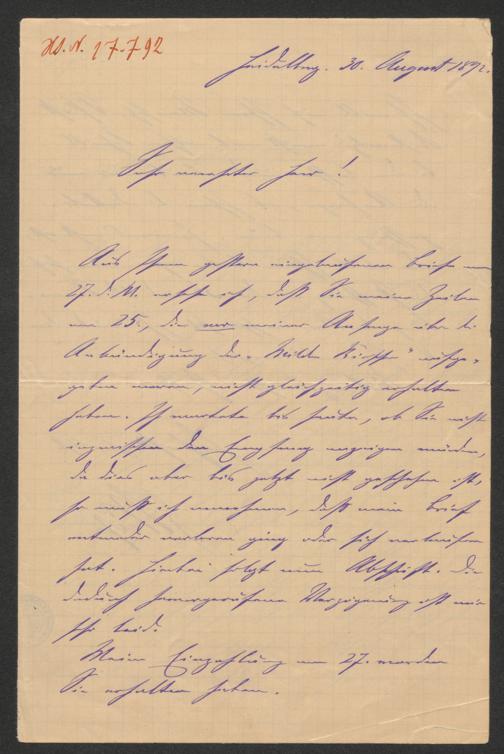 HS. N. 17.792
Heidelberg. 30. August 1892.
Sehr verehrter Herr!
Aus Ihrem gestern eingelaufenen Briefe vom
27. d. M. ersehe ich, daß Sie meine Zeilen
vom 25., die vor meiner Anfrage über die
Ankündigung der „Wilden Kirsche" aufge-
geben waren, nicht gleichzeitig erhalten
haben. Ich wartete bis heute, ob Sie nicht
inzwischen den Empfang anzeigen würden,
da dies aber bis jetzt nicht geschehen ist,
so muß ich annehmen, daß mein Brief
entweder verloren ging oder sich verlaufen
hat. Hierbei folgt nun Abschrift. Die
dadurch hervorgerufene Verzögerung ist mir
sehr leid.
Meine Einzahlung vom 27. werden
Sie erhalten haben.